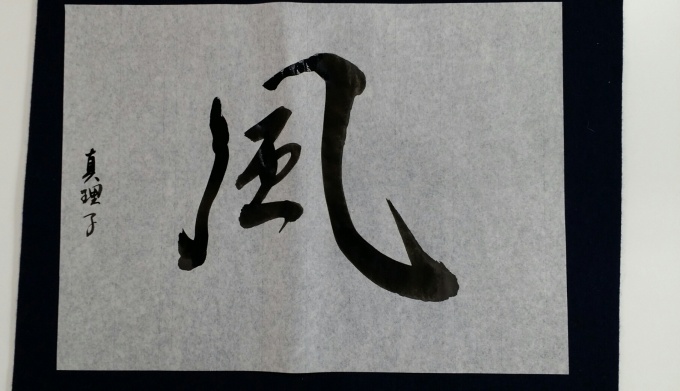 風
真理子